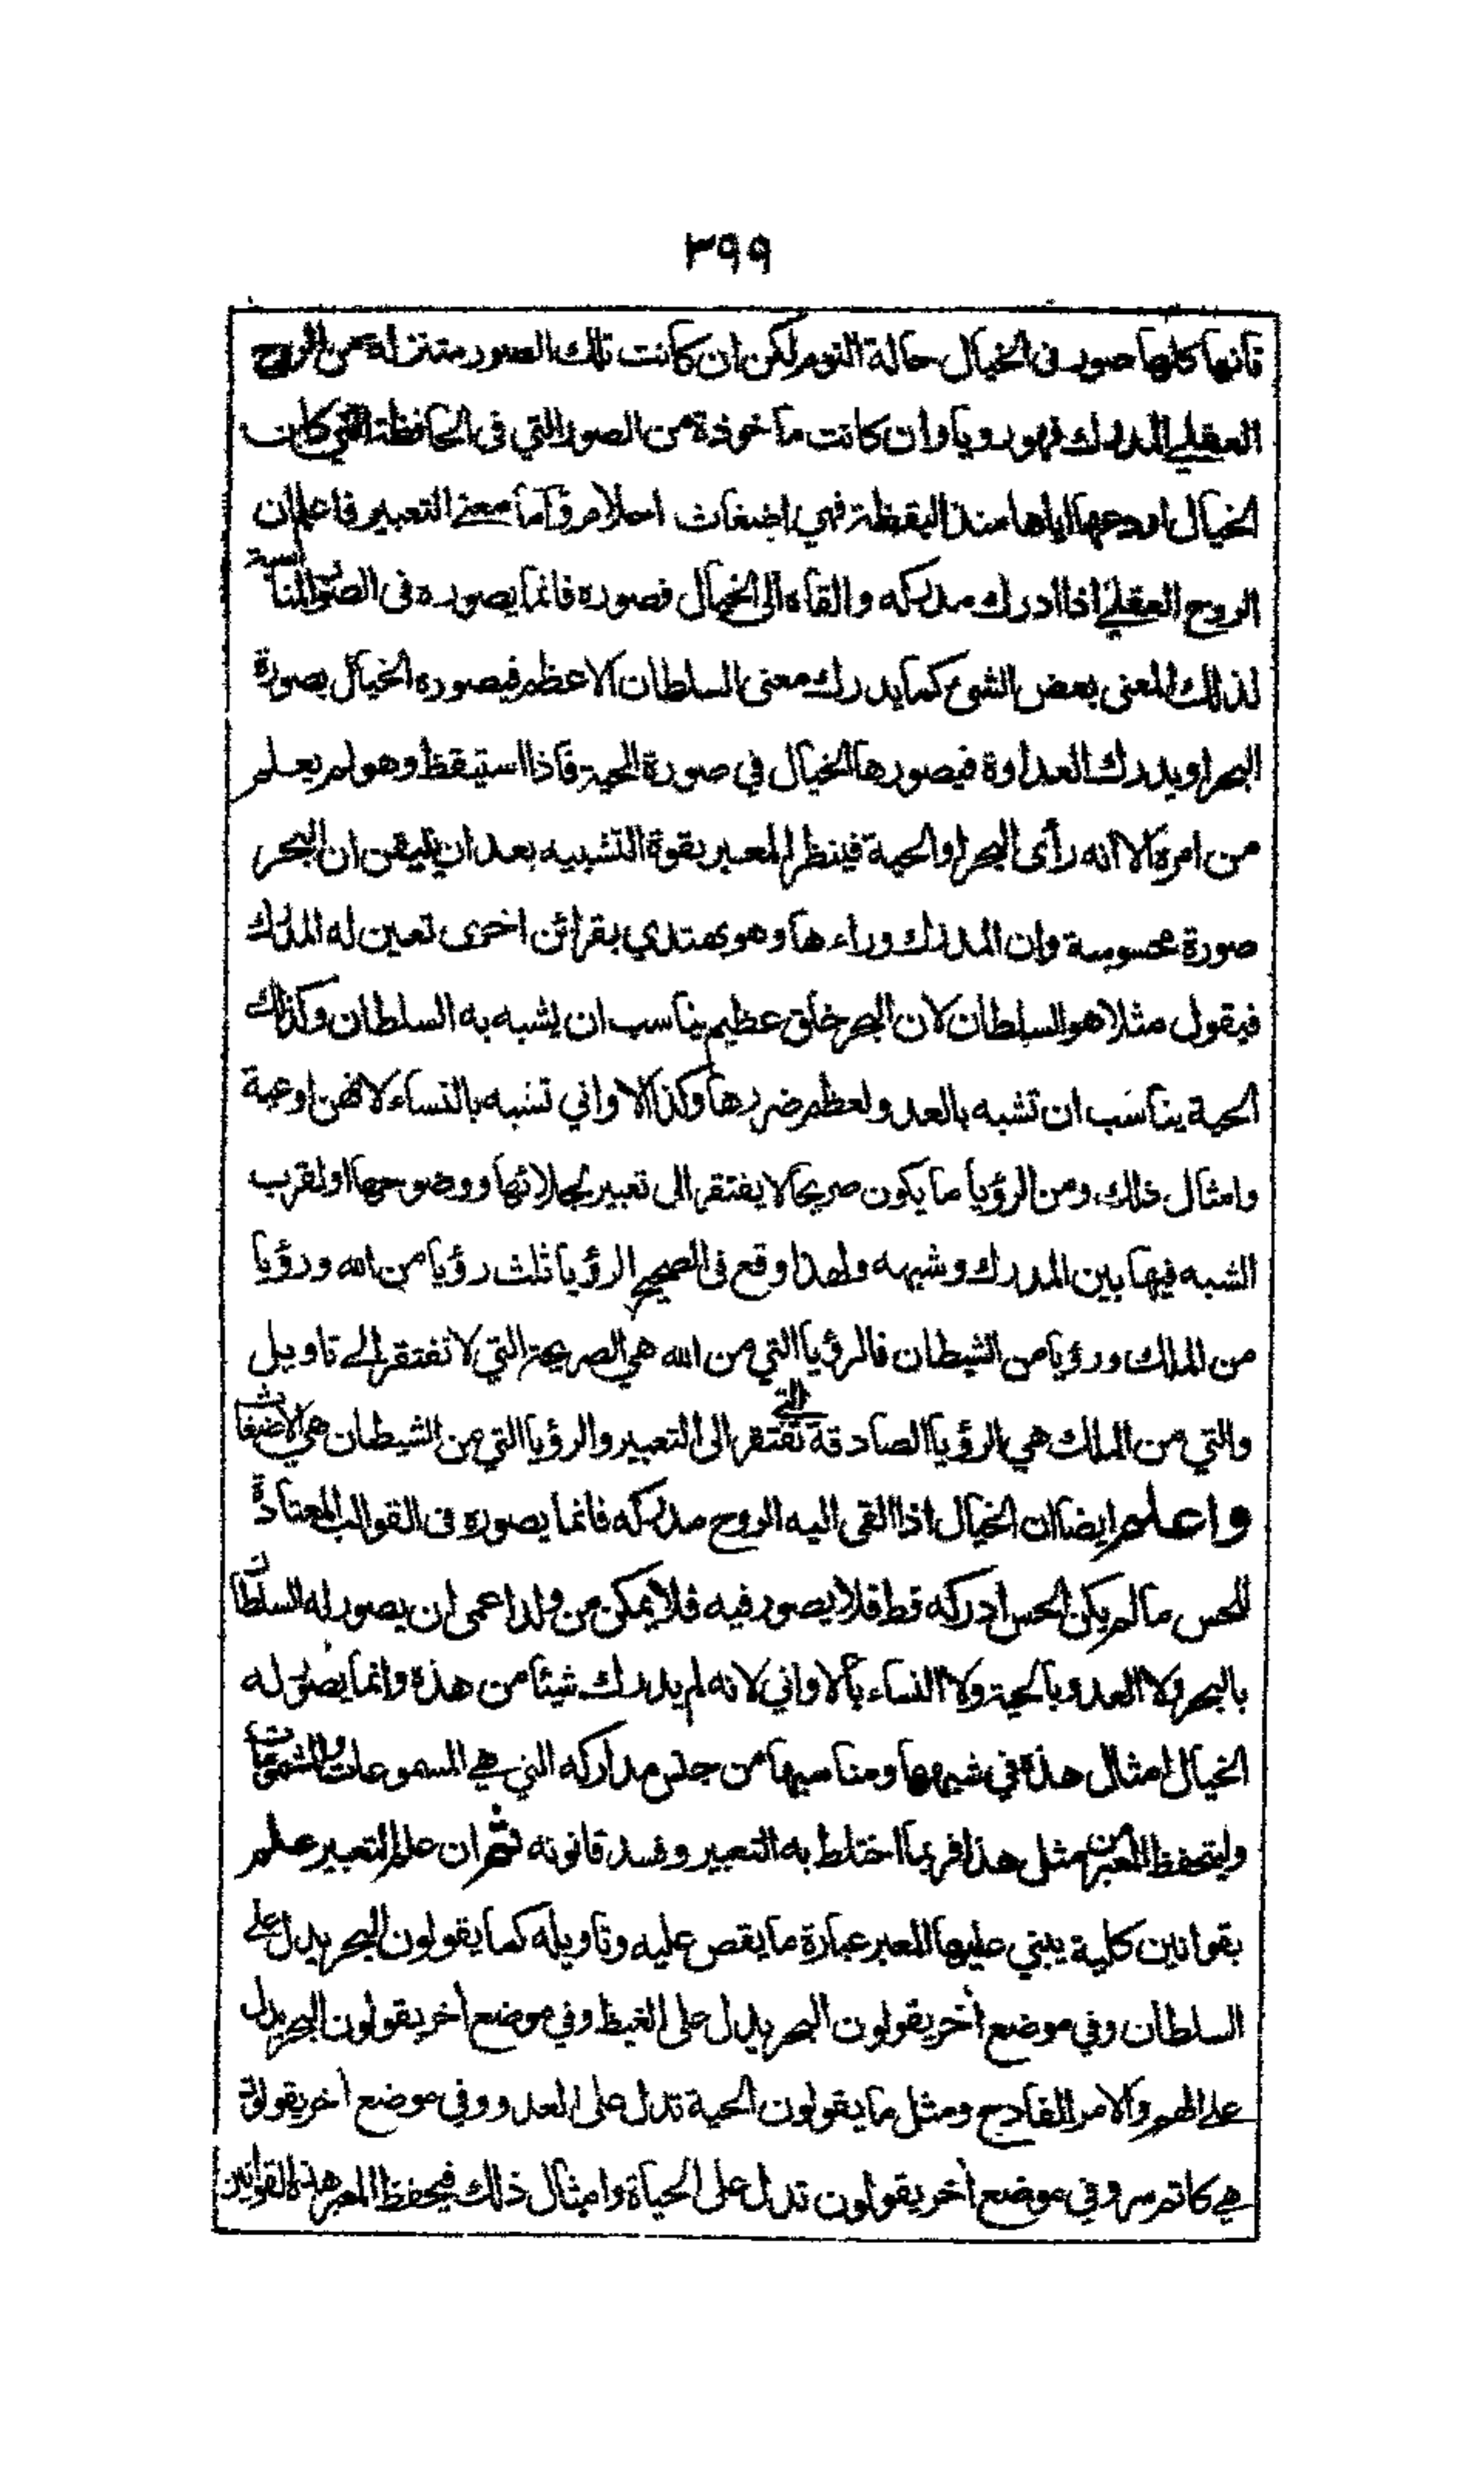 ٣٩٩
فانها كلها صور فى الخيال حالة النوم لكن ان كانت تلك الصور متنزلة من الروح
العقلي المدرك فهو رويا وان كانت مأخوذة من الصور التي فى الحافظة التي كان
الخيال اودعها اياها منذ اليقظة فهي اضغاث احلام وأما معنى التعبير فاعلم ان
الروح العقلي اذا ادرك مدركه والقاه الى الخيال فصوره فانما يصوره فى الصور المناسبة
لذلك المعنى بعض الشئ كما يدرك معنى السلطان الاعظم فيصوره الخيال بصورة
البحر او يدرك العداوة فيصورها الخيال في صورة الحية فاذا استيقظ وهو لم يعلم
من امره الا انه رأى البحر او الحية فينظر المعبر بقوة التشبيه بعد ان يتيقن ان البحر
صورة محسوسة وان المدرك وراءها وهو يهتدي بقرائن اخرى تعين له المدرك
فيقول مثلا هو السلطان لان البحر خلق عظيم يناسب ان يشبه به السلطان وكذلك
الحية يناسب ان تشبه بالعدو لعظم ضررها وكذا الاواني تشبه بالنساء لانهن اوعية
وامثال ذلك ومن الرؤيا ما يكون صريحا لا يفتقر الى تعبير لجلائها ووضوحها او لقرب
الشبه فيها بين المدرك وشبهه ولهذا وقع فى الصحيح الرؤيا ثلث رؤيا من الله ورؤيا
من الملك ورؤيا من الشيطان فالرؤيا التي من الله هي الصريحة التي لا تفتقر الى تاويل
والتي من الملك هي الرؤيا الصادقة التي تفتقر الى التعبير والرؤيا التي من الشيطان هي الاضغاث
واعلم ايضا ان الخيال اذا القى اليه الروح مدركه فانما يصوره فى القوالب المعتادة
للحس ما لم يكن الحس ادركه قط فلا يصور فيه فلا يمكن من ولد اعمى ان يصور له السلطان
بالبحر ولا العدو بالحية ولا النساء بالاواني لانه لم يدرك شيئا من هذه وانما يصور له
الخيال امثال هذه في شبهها ومناسبها من جنس مداركه التي هي المسموعات والمشمومات
وليتحفظ المعبر من مثل هذا فربما اختلط به التعبير وفسد قانونه ثم ان علم التعبير علم
بقوانين كلية يبني عليها المعبر عبارة ما يقص عليه وتاويله كما يقولون البحر يدل على
السلطان وفي موضع أخر يقولون البحر يدل على الغيظ وفي موضع أخر يقولون البحر يدل
على الهم والامر الفادح ومثل ما يقولون الحية تدل على العدو وفي موضع أخر يقولون
هي كاتم سر وفي موضع أخر يقولون تدل على الحياة وامثال ذلك فيحفظ المعبر هذه القوانين